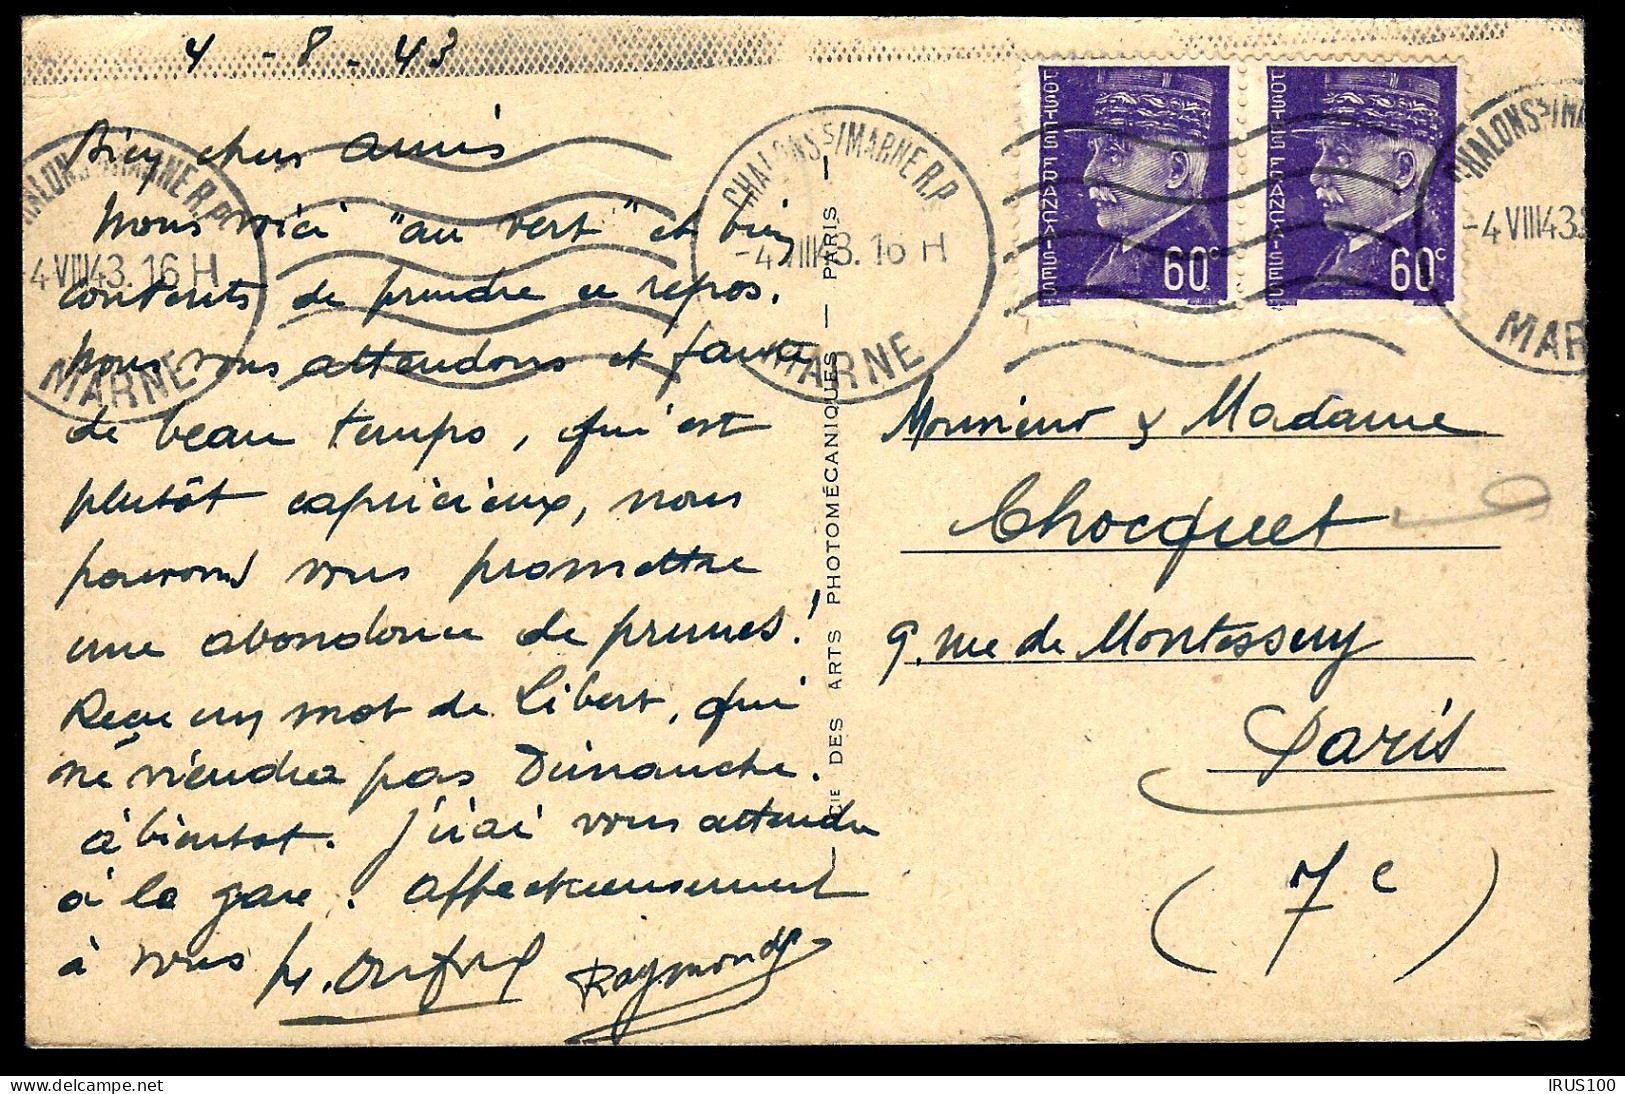 4 - 8 - 43
Bien chers amis
Nous voici "au vert" et bien
contents de prendre ce repos.
Nous vous attendons et faute
de beau temps, qui est
plutôt capricieux, nous
pouvons vous promettre
une abondance de prunes!
Reçu un mot de Libert, qui
ne viendra pas Dimanche.
à bientot. J'irai vous attendre
à la gare. Affectueusement
à vous
Raymond
CHALONS S/MARNE R.P.
-4 VIII 43. 16 H
MARNE
CHALONS S/MARNE R.P.
-4 VIII 43. 16 H
MARNE
CIE DES ARTS PHOTOMÉCANIQUES — PARIS —
POSTES FRANÇAISES
60c
POSTES FRANÇAISES
60c
CHALONS S/MA
-4 VIII 43
MAR
Monsieur & Madame
Chocquet
9. rue de Montessuy
Paris
(7e)
IRUS100